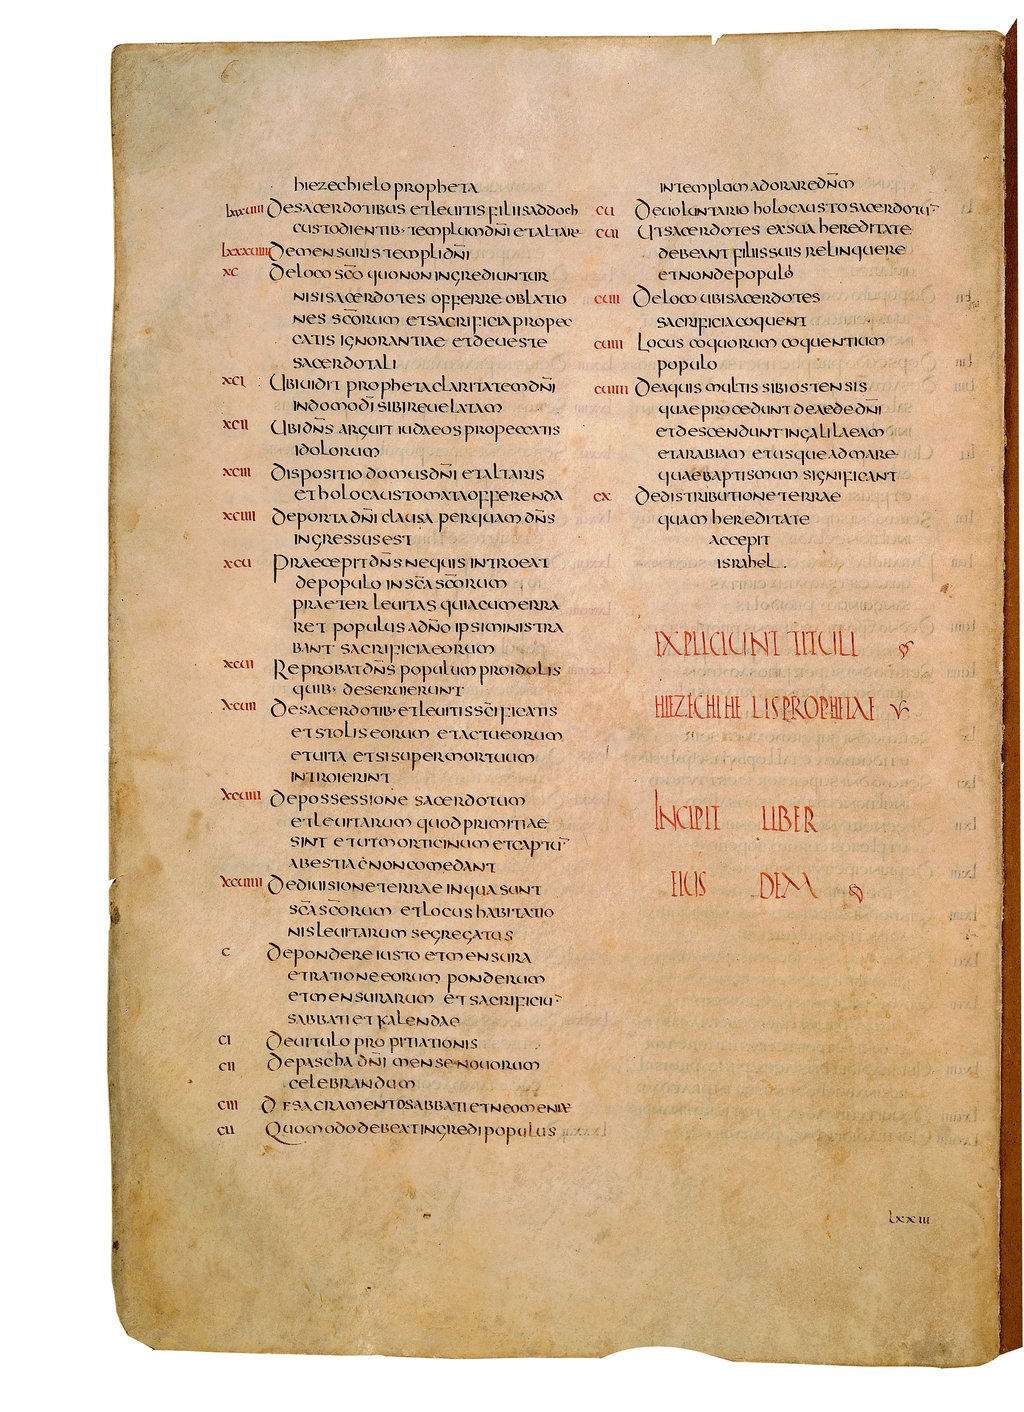 hiezechielo propheta
lxxxuiii De sacerdotibus et leuitis filiis saddoch
custodientib· templum dn̄i et altare
lxxxuiiii De mensuris templi dn̄i
xc De loco sc̄o quo non ingrediuntur
nisi sacerdotes offerre oblatio
nes sc̄orum et sacrificia pro pec
catis ignorantiae et de ueste
sacerdotali
xci Ubi uidit propheta claritatem dn̄i
in domo dī sibi reuelatam
xcii Ubi dn̄s arguit iudaeos pro peccatis
idolorum
xciii Dispositio domus dn̄i et altaris
et holocaustomata offerenda
xciiii De porta dn̄i clausa per quam dn̄s
ingressus est
xcu Praecepit dn̄s ne quis introeat
de populo in sc̄a sc̄orum
praeter leuitas quia cum erra
ret populus a dn̄o ipsi ministra
bant sacrificia eorum
xcui Reprobat dn̄s populum pro idolis
quib· deseruierunt
xcuii De sacerdotib· et leuitis sc̄ificatis
et stolis eorum et actu eorum
et uita et si super mortuum
introierint
xcuiii De possessione sacerdotum
et leuitarum quod primitiae
sint et ut morticinum et captū
a bestia c̄ non comedant
xcuiiii De diuisione terrae in qua sunt
sc̄a sc̄orum et locus habitatio
nis leuitarum segregatus
c De pondere iusto et mensura
et ratione eorum ponderum
et mensurarum et sacrificiū
sabbati et kalendae
ci De uitulo propitiationis
cii De pascha dn̄i mense nouorum
celebrandum
ciii De sacramento sabbati et neomeniae
cu Quomodo debeat ingredi populus
in templum adorare dn̄m
cu De uoluntario holocausto sacerdotū
cui Ut sacerdotes ex sua hereditate
debeant filiis suis relinquere
et non de populo
cuii De loco ubi sacerdotes
sacrificia coquent
cuiii Locus coquorum coquentium
populo
cuiiii De aquis multis sibi ostensis
quae procedunt de aede dn̄i
et descendunt in galilaeam
et arabiam et usque ad mare
quae baptismum significant
cx De distributione terrae
quam hereditate
accepit
israhel
EXPLICIUNT TITULI
HIEZECHIHELIS PROPHETAE
INCIPIT LIBER
EIUSDEM
lxxiii